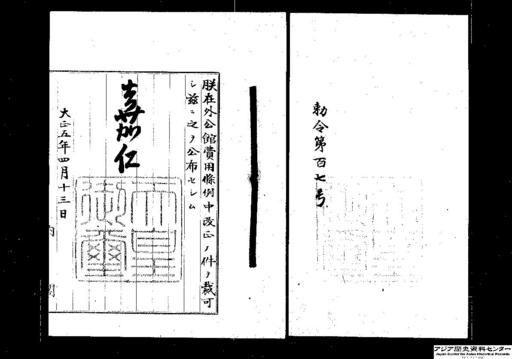 勅令第百七号
朕在外公館費用條例中改正ノ件ヲ裁可
シ茲ニ之ヲ公布セシム
嘉仁
天皇
御璽
大正五年四月十三日
内閣
アジア歴史資料センター
Japan Center for Asian Historical Records